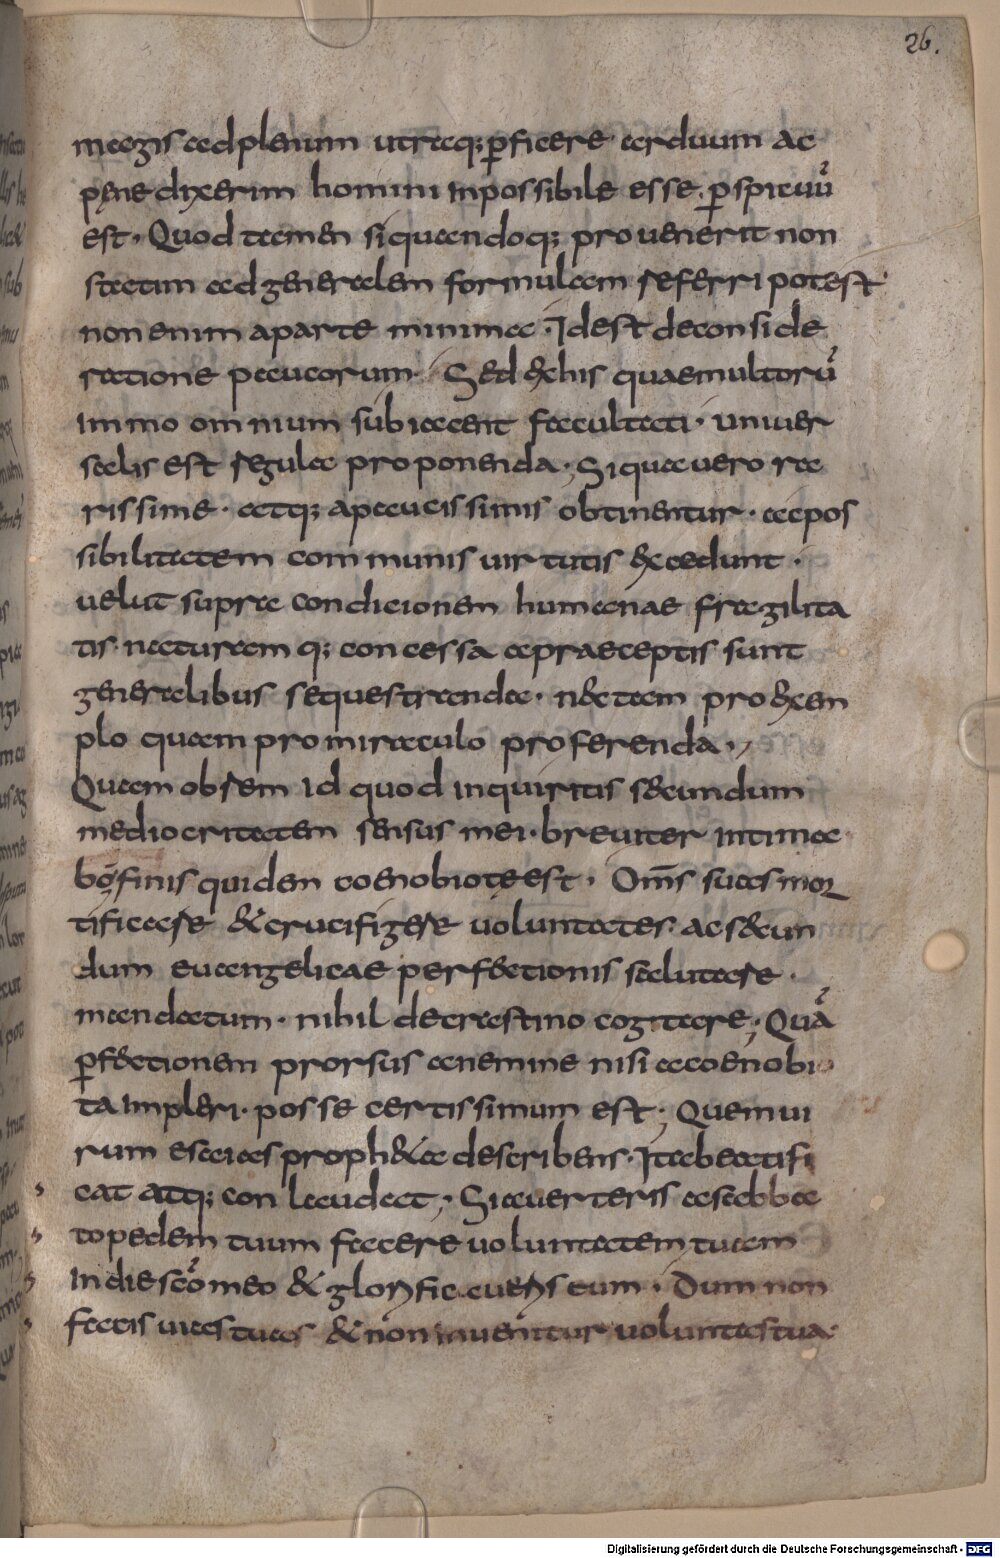 26.
magis ad plenum utraq; ꝑficere arduum ac
pęne dixerim homini inpossibile esse ꝑspicuū
est. Quod tamen si quandoq; prouenerit non
statim ad generalem formulam referri potest
non enim a parte minima. Idest deconside
ratione paucorum. Sed exhis quae multorū
immo omnium subiacent facultati. uniuer
salis est regula proponenda; Siqua uero ra
rissime. atq; apaucissimis obtinentur. acpos
sibilitatem communis uirtutis excedunt.
uelut supra condicionem humanae fragilita
tis naturamq; concessa apraeceptis sunt
generalibus sequestranda. n& tam pro exem
plo quam pro miraculo proferenda.
Quam obrem id quod inquiritis s&cundum
mediocritatem sensus mei. breuiter intima
bo; finis quidem coenobiotę est. Om̄s suas mor
tificare & crucifigere uoluntates. ac s&cun
dum euangelicae perf&ctionis salutare.
mandatum. nihil de crastino cogitare; Quā
ꝑf&ctionem prorsus anemine nisi a coenobi
ta impleri. posse certissimum est; Quem ui
rum esaias proph&a describens. Ita beatifi
cat atq; conlaudat; Si auerteris a sabba
to pedem tuum facere uoluntatem tuam
In die scō meo & glorificaueris eum. Dum non
facis uias tuas & non inuenitur uoluntas tua
Digitalisierung gefördert durch die Deutsche Forschungsgemeinschaft - DFG